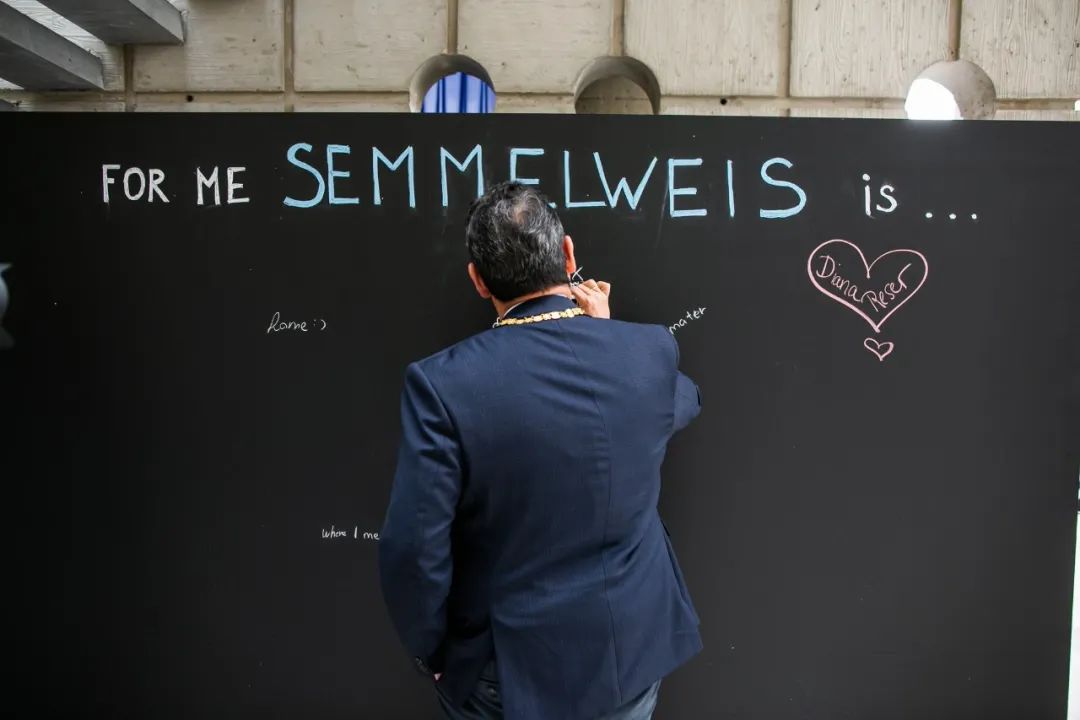 FOR ME SEMMELWEIS is ...
Diana Reser
mater
where I me